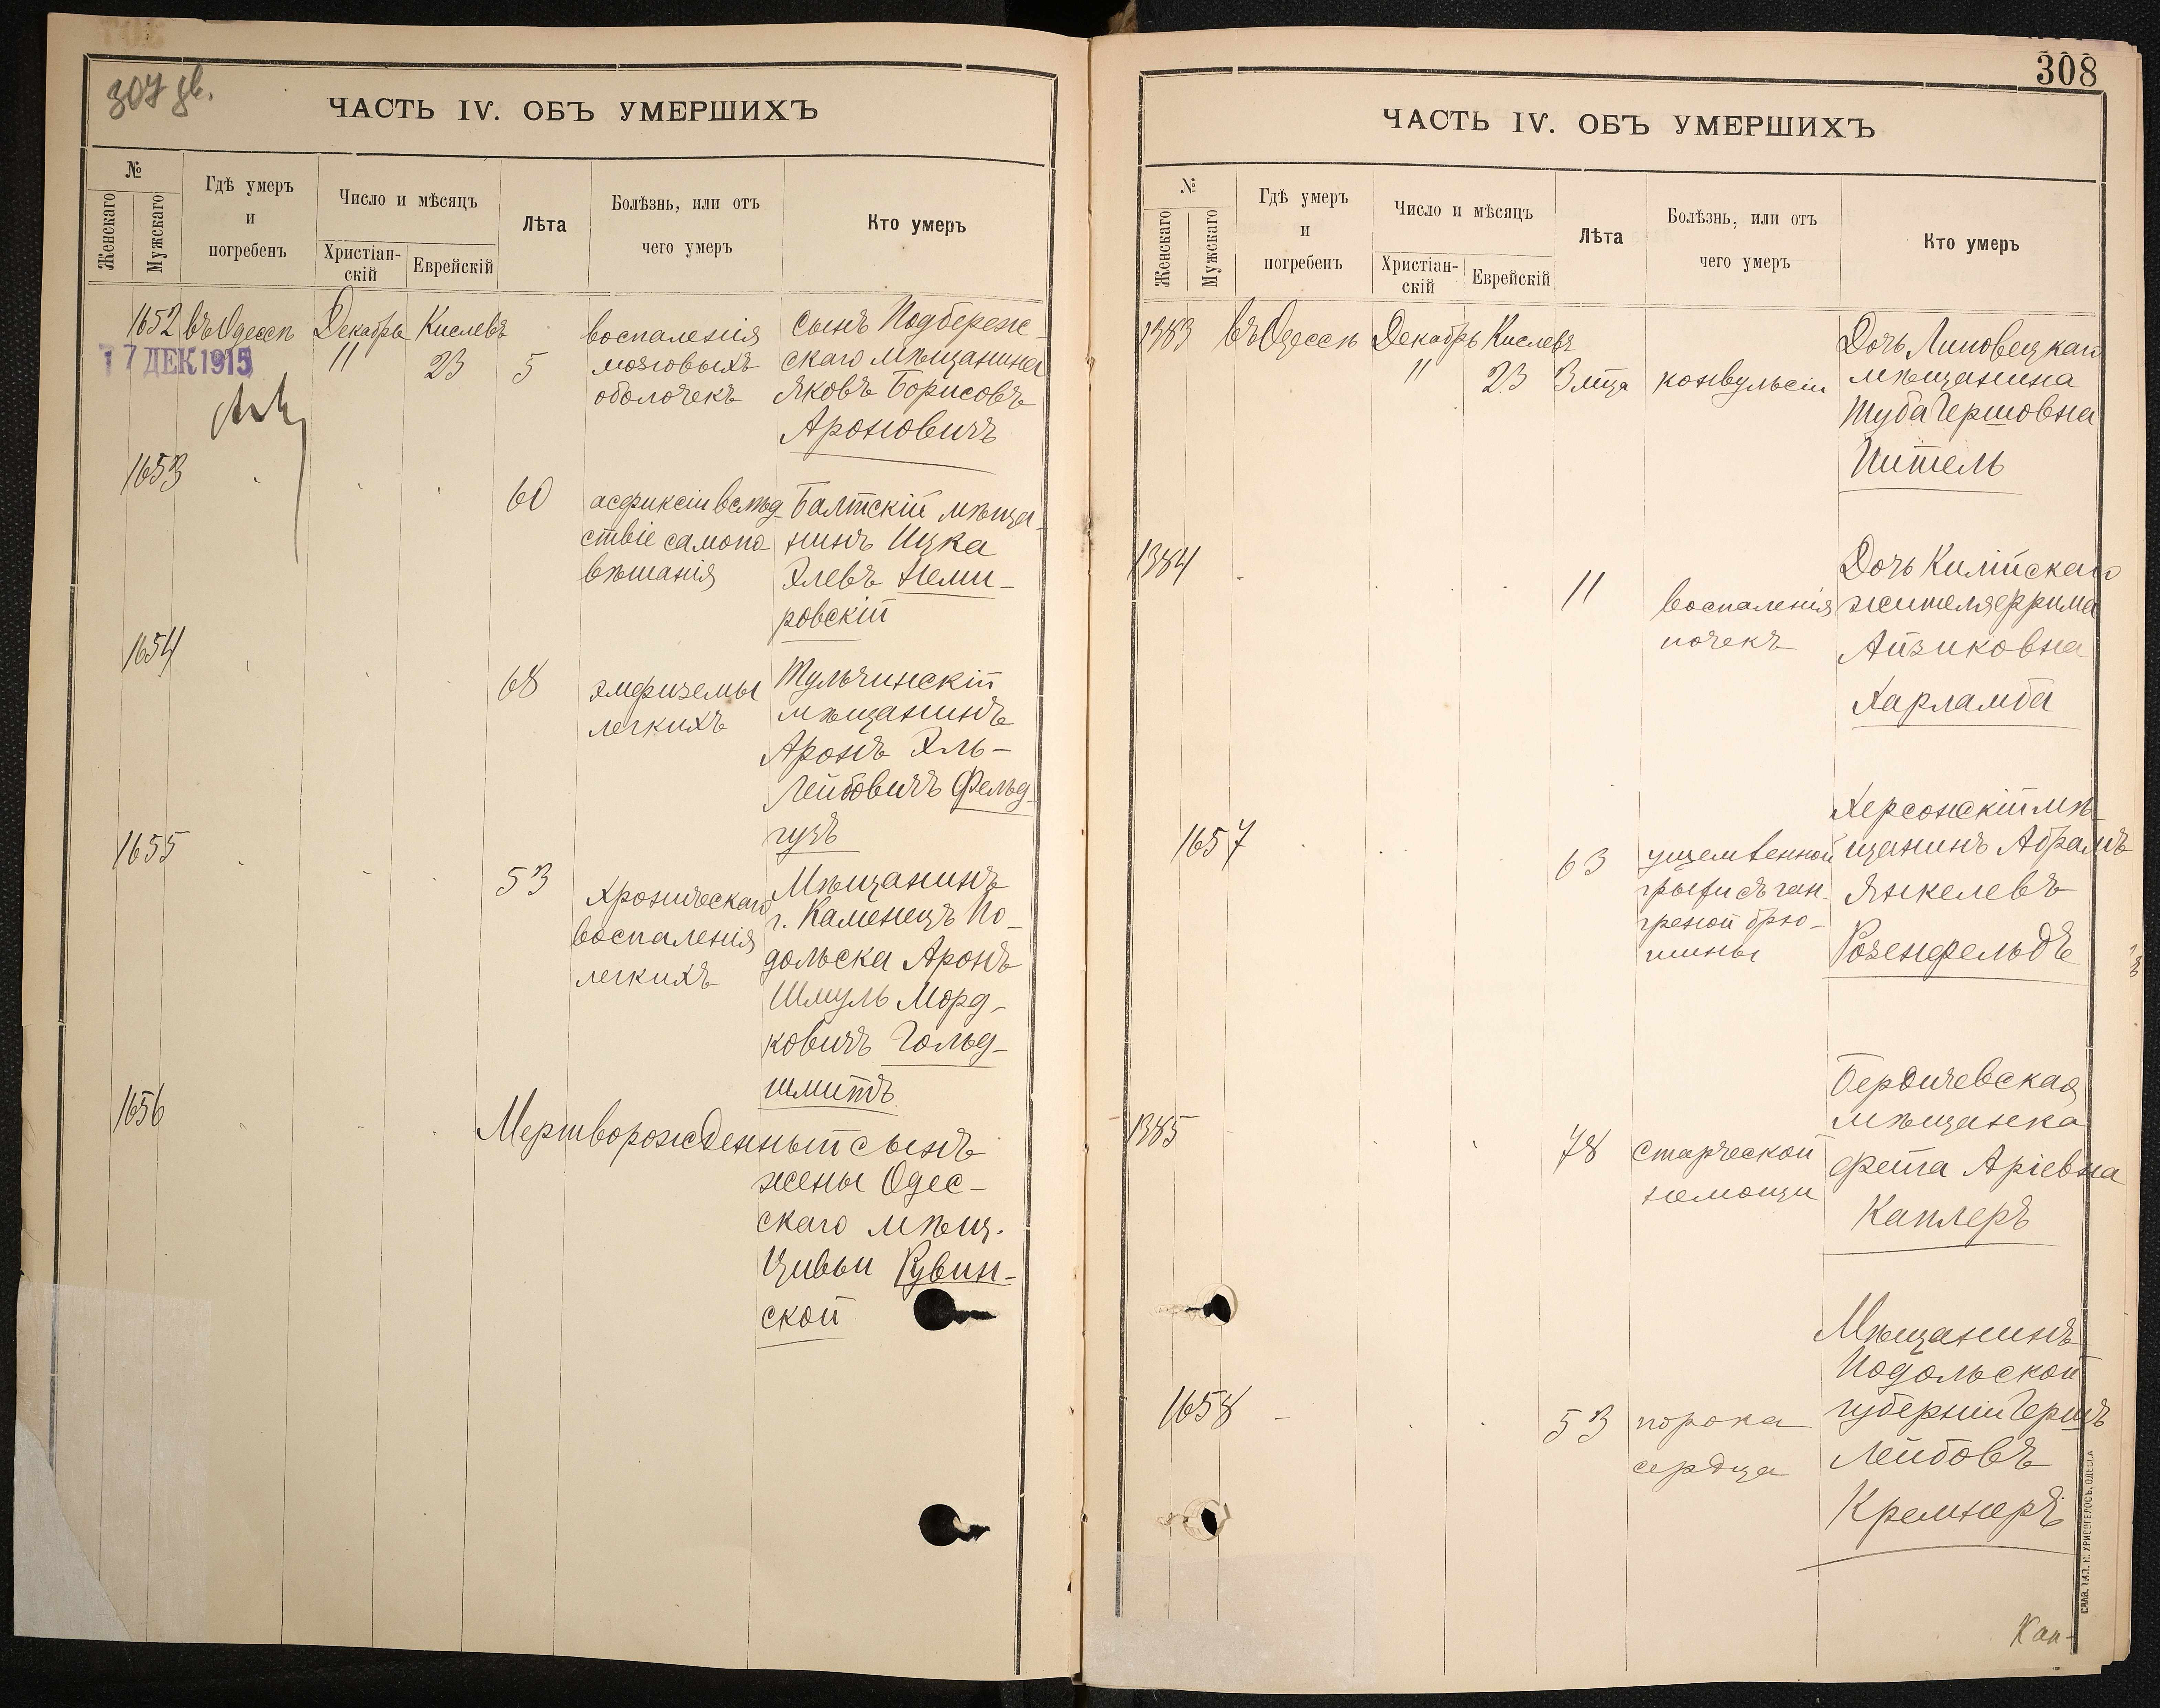 307 об.
ЧАСТЬ IV. ОБЪ УМЕРШИХЪ
№
Женскаго
Мужскаго
Гдѣ умеръ
и
погребенъ
Число и мѣсяцъ
Христіан-
скій
Еврейскій
Лѣта
Болѣзнь, или отъ
чего умеръ
Кто умеръ
1652 въ Одессѣ Декабрь 11 Кислевъ 23 5
17 ДЕК 1915
воспаленія
мозговыхъ
оболочекъ
сынъ Подбереж-
скаго мѣщанина
Яковъ Борисовъ
Ароновичъ
1653 60
асфиксіи вслѣд-
ствіе самопо
вѣшанія
Балтскій мѣща-
нинъ Ицка
Элевъ Неми-
ровскій
1654 68
эмфиземы
легкихъ
Тульчинскій
мѣщанинъ
Аронъ Эль-
Лейбовичъ Фельд-
гузъ
1655 53
Хроническаго
воспаленія
легкихъ
Мѣщанинъ
г. Каменецъ По-
дольска Аронъ
Шмуль Морд-
ковичъ Гольд-
шмитъ
1656
Мертворожденный сынъ
жены Одес-
скаго мѣщ.
Цивьи Рувин-
ской
308
ЧАСТЬ IV. ОБЪ УМЕРШИХЪ
№
Женскаго
Мужскаго
Гдѣ умеръ
и
погребенъ
Число и мѣсяцъ
Христіан-
скій
Еврейскій
Лѣта
Болѣзнь, или отъ
чего умеръ
Кто умеръ
1383 въ Одессѣ Декабрь 11 Кислевъ 23 3 мца конвульсіи
Дочь Липовецкаго
мѣщанина
Туба Гершовна
Питель
1384 11
воспаленія
почекъ
Дочь Килійскаго
жителя Фрима
Айзиковна
Харламба
1657 63
ущемленной
грыжи съ ган-
греной брю-
шины
Херсонскій мѣ-
щанинъ Абрамъ
Янкелевъ
Розенфельдъ
1385 78
старческой
немощи
Бердичевская
мѣщанка
Фейга Аріевна
Каплеръ
1658 53
порока
сердца
Мѣщанинъ
Подольской
губерніи Гершъ
Лейбовъ
Кремнеръ
Кап-
СЛАВ. ТИП. Н. ХРИСОГЕЛОСЪ. ОДЕССА